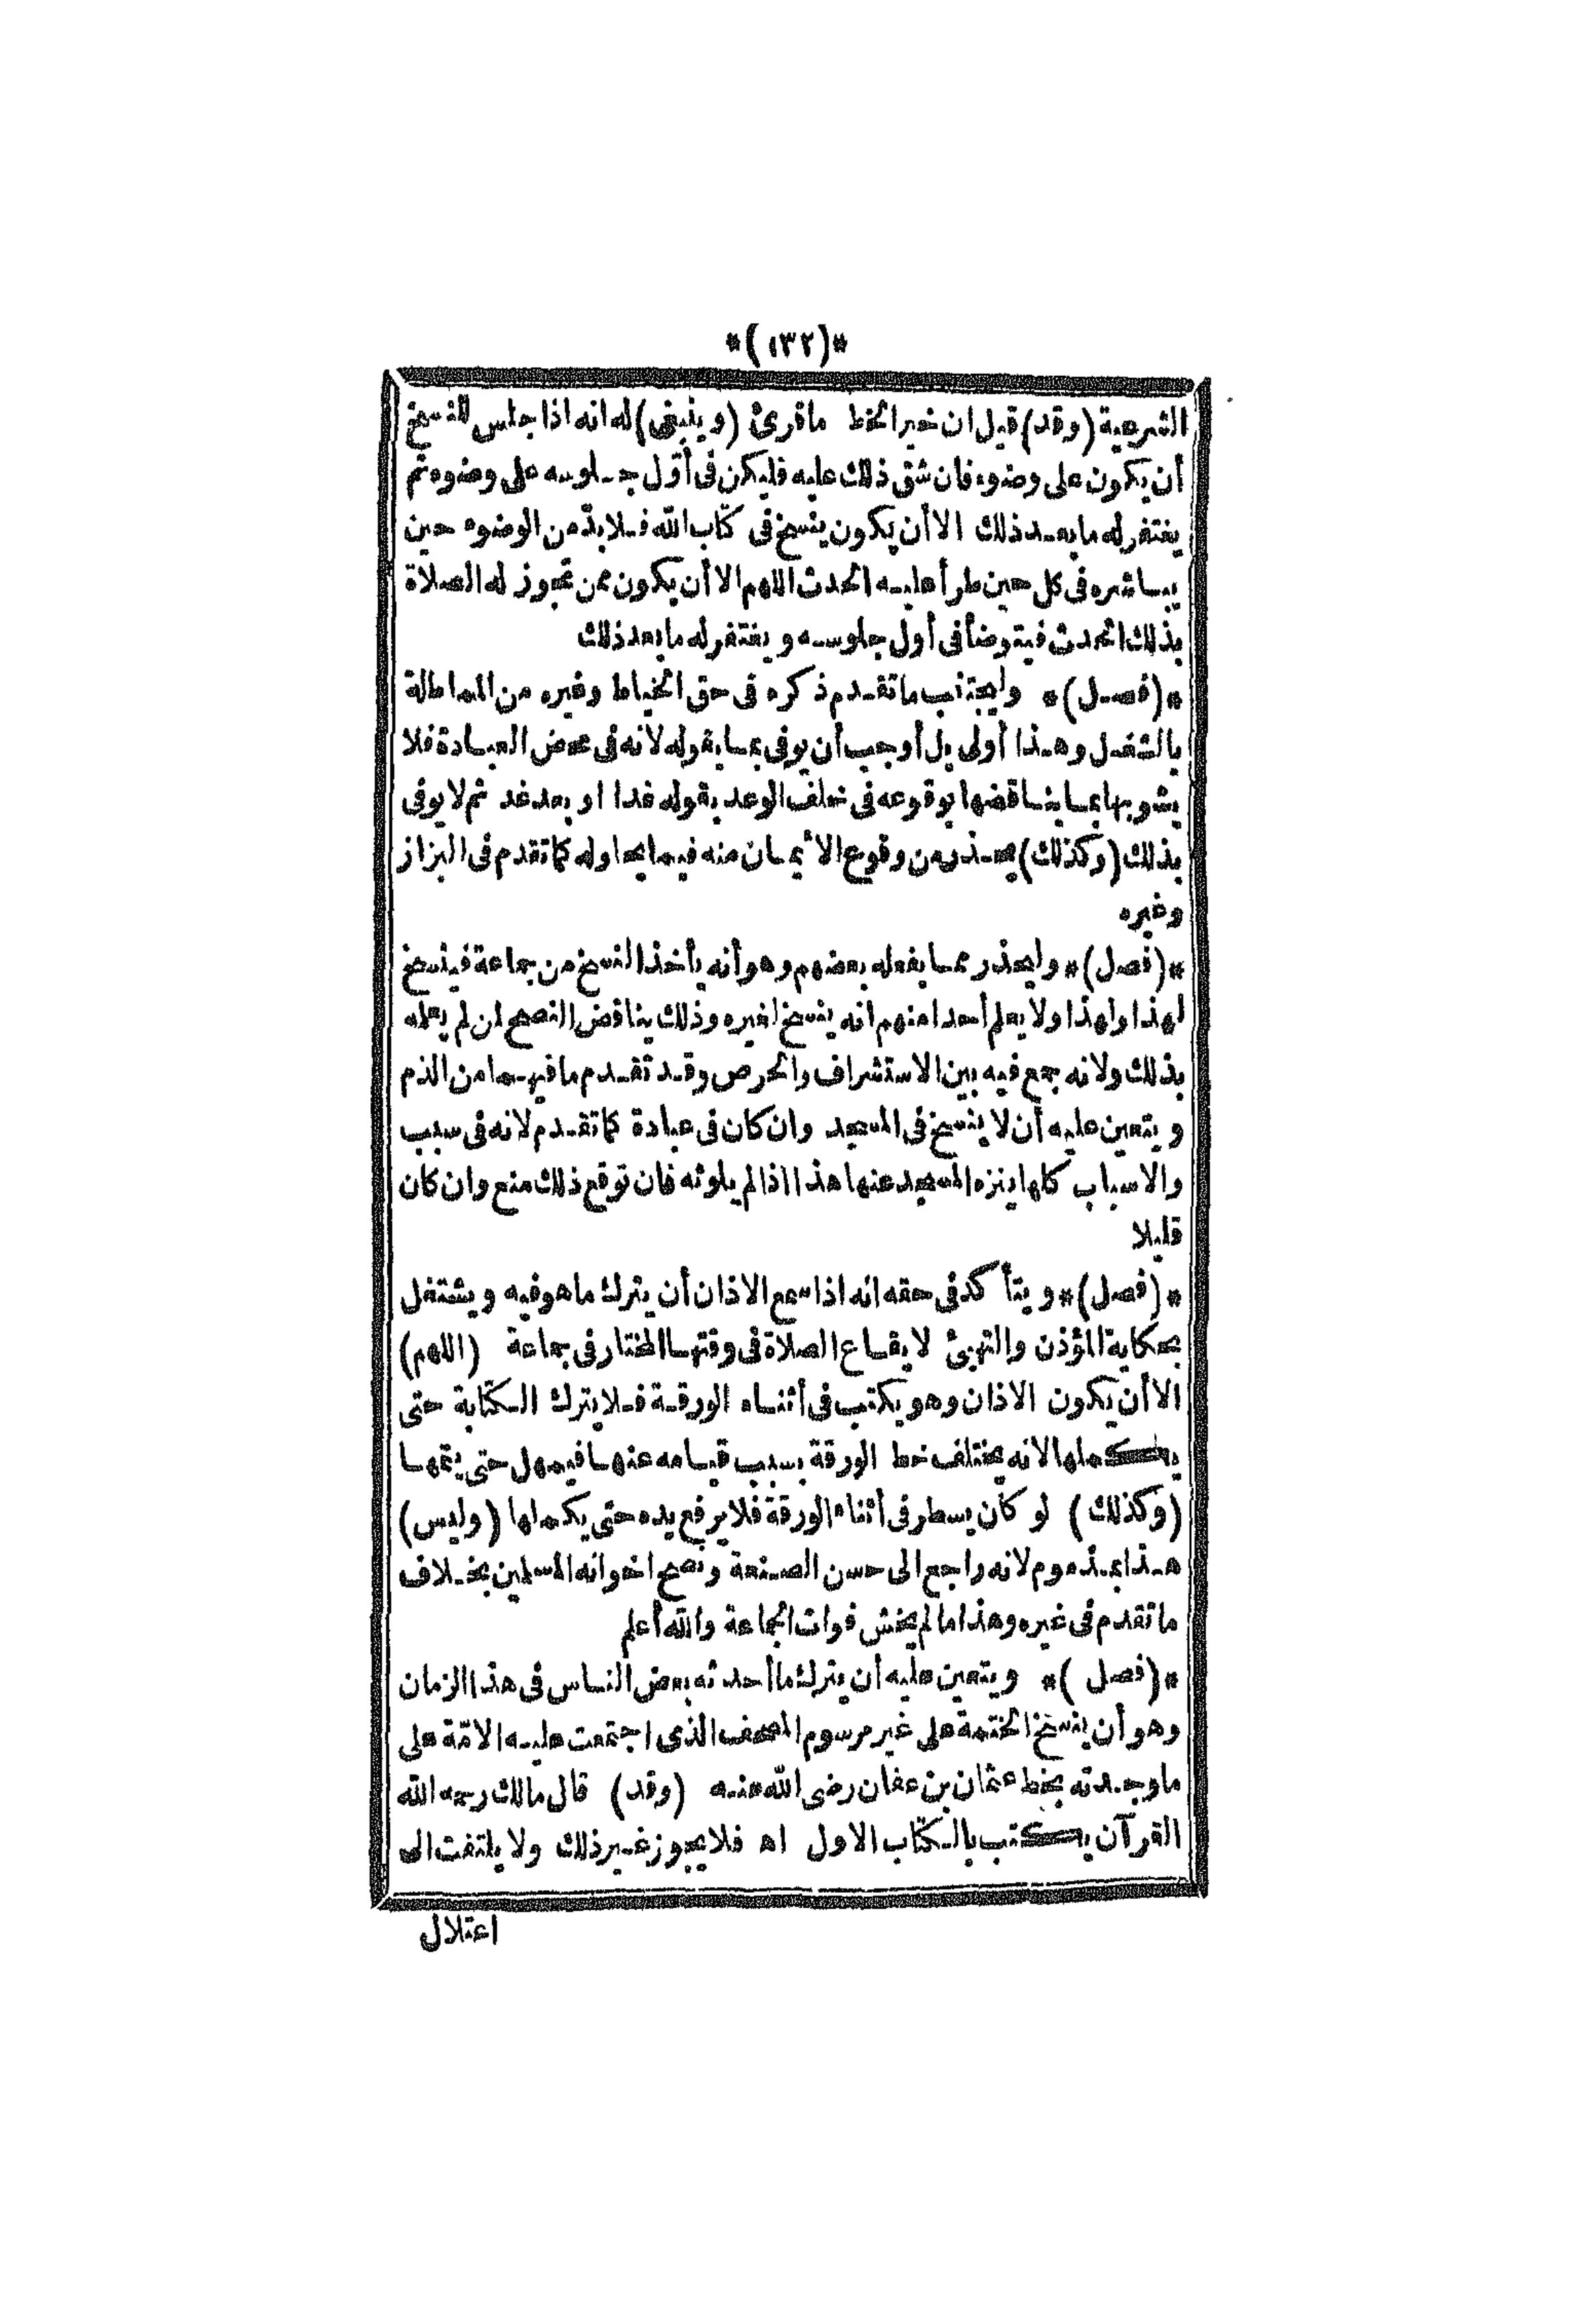 *(١٣٢)*
الشرعية (وقد) قيل ان خير الخط ما قرئ (وينبغى) له انه اذا جلس للنسخ
أن يكون على وضوء فان شق ذلك عليه فليكن فى أوّل جلوسه على وضوء ثم
يغتفر له ما بعد ذلك الا أن يكون ينسخ فى كتاب الله فلا بدّ من الوضوء حين
يباشره فى كل حين طرأ عليه الحدث اللهم الا أن يكون ممن تجوز له الصلاة
بذلك الحدث فيتوضأ فى أول جلوسه ويغتفر له ما بعد ذلك
*(فصل)* وليجتنب ما تقدم ذكره فى حق الخياط وغيره من المماطلة
بالشغل وهذا أولى بل أوجب أن يوفى بما يقوله لانه فى محض العبادة فلا
يشوبها بما يناقضها بوقوعه فى خلف الوعد بقوله غدا او بعد غد ثم لا يوفى
بذلك (وكذلك) يحذر من وقوع الأيمان منه فيما يحاوله كما تقدم فى البزاز
وغيره
*(فصل)* وليحذر مما يفعله بعضهم وهو أنه يأخذ النسخ من جماعة فينسخ
لهذا ولهذا ولا يعلم أحدا منهم انه ينسخ لغيره وذلك يناقض النصح لمن لم يعلمه
بذلك ولانه جمع فيه بين الاستشراف والحرص وقد تقدم ما فيهما من الذم
ويتعين عليه أن لا ينسخ فى المسجد وان كان فى عبادة كما تقدم لانه فى سبب
والاسباب كلها ينزه المسجد عنها هذا اذا لم يلوثه فان توقع ذلك منع وان كان
قليلا
*(فصل)* ويتأكد فى حقه انه اذا سمع الاذان أن يترك ما هو فيه ويشتغل
بحكاية المؤذن والتهيئ لايقاع الصلاة فى وقتها المختار فى جماعة (اللهم)
الا أن يكون الاذان وهو يكتب فى أثناء الورقة فلا يترك الكتابة حتى
يكملها لانه يختلف خط الورقة بسبب قيامه عنها فيمهل حتى يتمها
(وكذلك) لو كان يسطر فى أثناء الورقة فلا يرفع يده حتى يكملها (وليس)
هذا بمذموم لانه راجع الى حسن الصنعة ونصح اخوانه المسلمين بخلاف
ما تقدم فى غيره وهذا ما لم يخش فوات الجماعة والله أعلم
*(فصل)* ويتعين عليه أن يترك ما أحدثه بعض الناس فى هذا الزمان
وهو أن ينسخ الختمة على غير مرسوم المصحف الذى اجتمعت عليه الامّة على
ما وجدته بخط عثمان بن عفان رضى الله عنه (وقد) قال مالك رحمه الله
القرآن يكتب بالكتاب الاول اه فلا يجوز غير ذلك ولا يلتفت الى
اعتلال